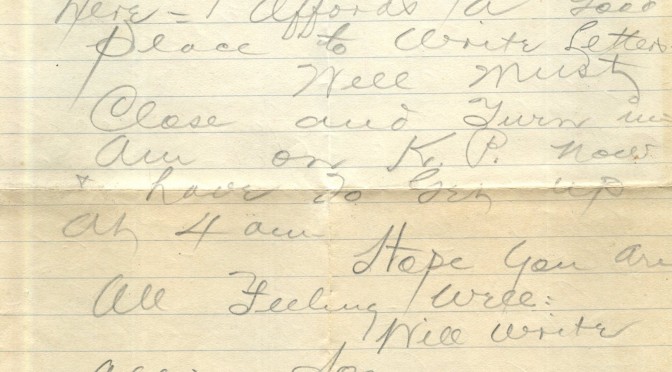 here - I Affords A Good
place to Write Letters
Well Must
Close and Turn in
Am on K. P. now
+ have to Get up
At 4 am
Hope You Are
All Feeling Well:
Will Write